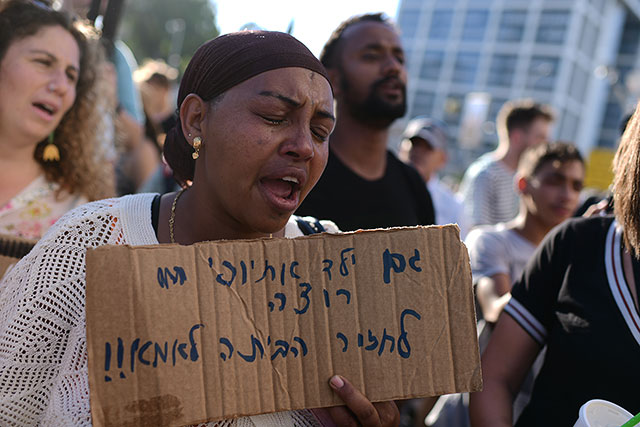 גם ילד אתיופי
רוצה
לחזור הביתה לאמא!!!